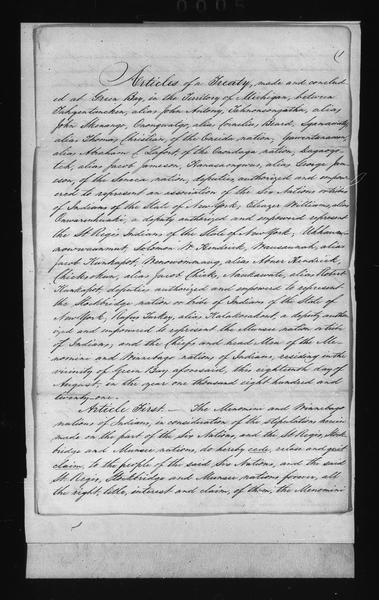 (1
Articles of a Treaty, made and conclud
ed at Green Bay, in the Territory of Michigan, between
alias John Antony,
John Skenango, alias Cornelius Beard,
alias Thomas Christian, of the Oneida nation,
alias Abraham of the Onondaga nation,
alias Jacob Jameson, alias George Jam
eson, of the Seneca nation, deputies, authorized and empow
ered to represent an association of the Six Nations or tribes
of Indians of the State of New York, Eleazer Williams, alias
a deputy authorized and empowered represent
the St Regis Indians of the State of New York;
Solomon U. Hendrick, alias
Jacob Kunkapot, alias Abner Hendrick,
alias Jacob Chicks, alias Robert
Kunkapot, deputies authorized and empowered to represent
the Stockbridge nation or tribe of Indians of the State of
New York, Rufus Turkey, alias a deputy author
ized and empowered to represent the Munsee nation or tribe
of Indians, and the Chiefs and head Men of the Me-
nomini and Winnebago nations of Indians, residing in the
vicinity of Green Bay aforesaid, this eighteenth day of
August, in the year one thousand eight hundred and
twenty-one.
Article First. — The Menomini and Winnebago
nations of Indians, in consideration of the stipulations herein
made on the part of the Six Nations, and the St Regis, Stock
bridge and Munsee nations, do hereby cede, release and quit
claim, to the people of the said Six Nations, and the said
St Regis, Stockbridge and Munsee nations forever, all
the right, title, interest and claim, of them, the Menomini